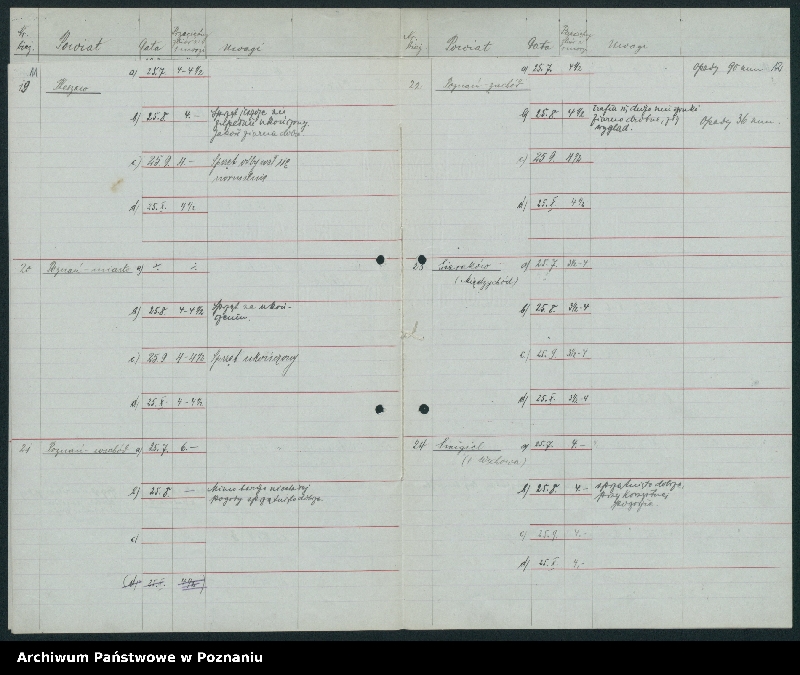 Powiat Data Uwagi
19 Pleszew a) 25.7. 4-4½
b) 25.8 4.-
zupełnie ukończony,
jakość ziarna dobra
c) 25.9. 4.- Sprzęt odbywał się
normalnie
d) 25.X. 4½
20 Poznań-miasto a)
b) 25.8. 4-4½ Sprzęt na ukoń-
czeniu.
c) 25.9 4-4½ Sprzęt ukończony
d) 25.X. 4-4½
21 Poznań-wschód a) 25.7. 6.-
b) 25.8. — Mimo bardzo niestałej
pogody sprzątnięto dobrze.
c)
d) 25.X.
Powiat Data Uwagi
22. Poznań-zachód a) 25.7. 4½ opady 90 mm
b) 25.8 4½
ziarno drobne, zły opady 36 mm.
wygląd.
c) 25.9 4½
d) 25.X. 4½
23 a) 25.7. 3½-4
(Międzychód)
b) 25.8. 3½-4
c) 25.9. 3½-4
d) 25.X. 3½-4
24 Śmigiel a) 25.7. 4.-
b) 25.8. 4.- sprzątnięto dobrze,
przy korzystnej
pogodzie.
c) 25.9. 4.-
d) 25.X 4.-
Archiwum Państwowe w Poznaniu